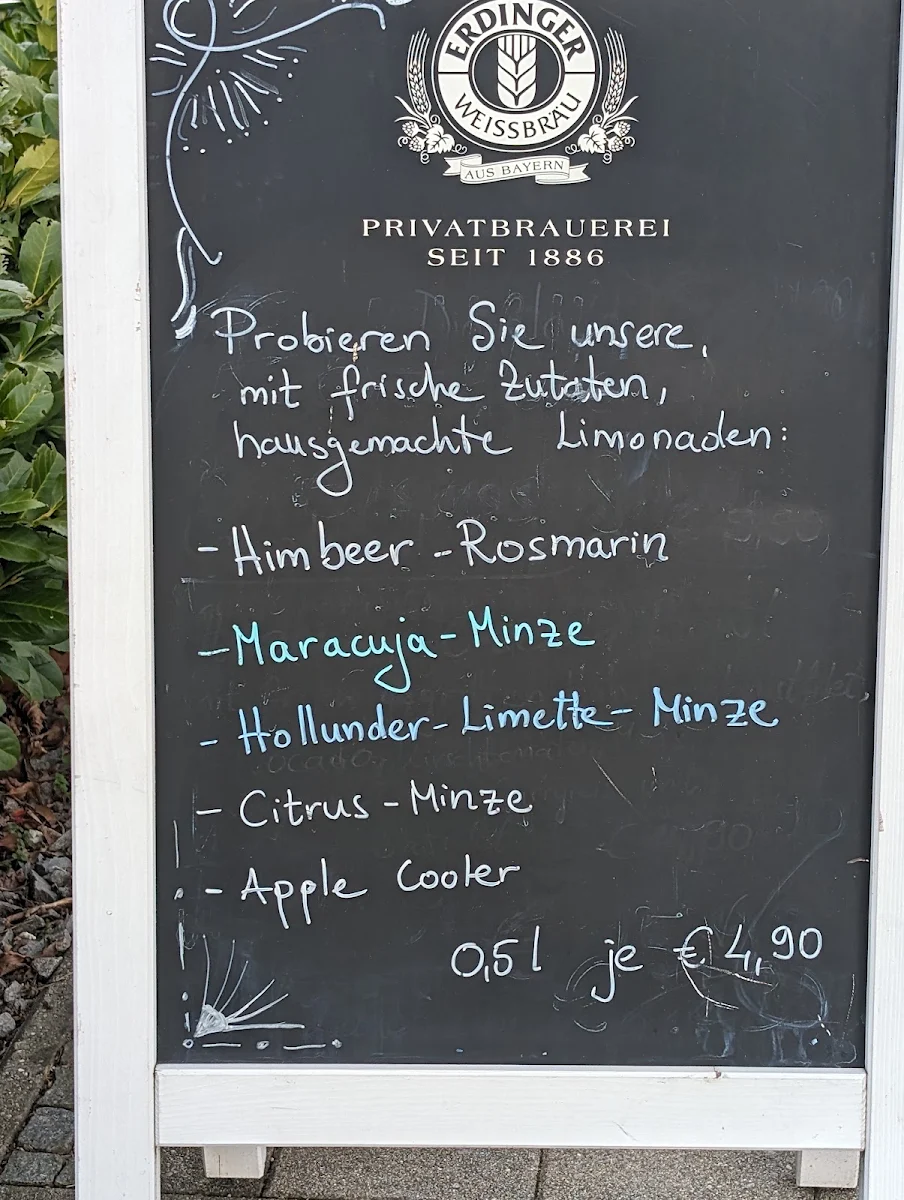 ERDINGER
WEISSBRÄU
AUS BAYERN
PRIVATBRAUEREI
SEIT 1886
Probieren Sie unsere,
mit frische Zutaten,
hausgemachte Limonaden:
- Himbeer - Rosmarin
- Maracuja - Minze
- Hollunder - Limette - Minze
- Citrus - Minze
- Apple Cooler
0,5 l je € 4,90